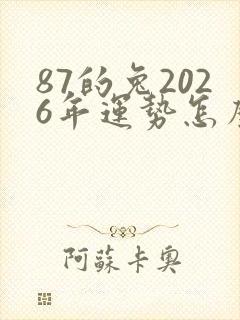 87的兔202
6年運勢怎
阿蘇卡奧